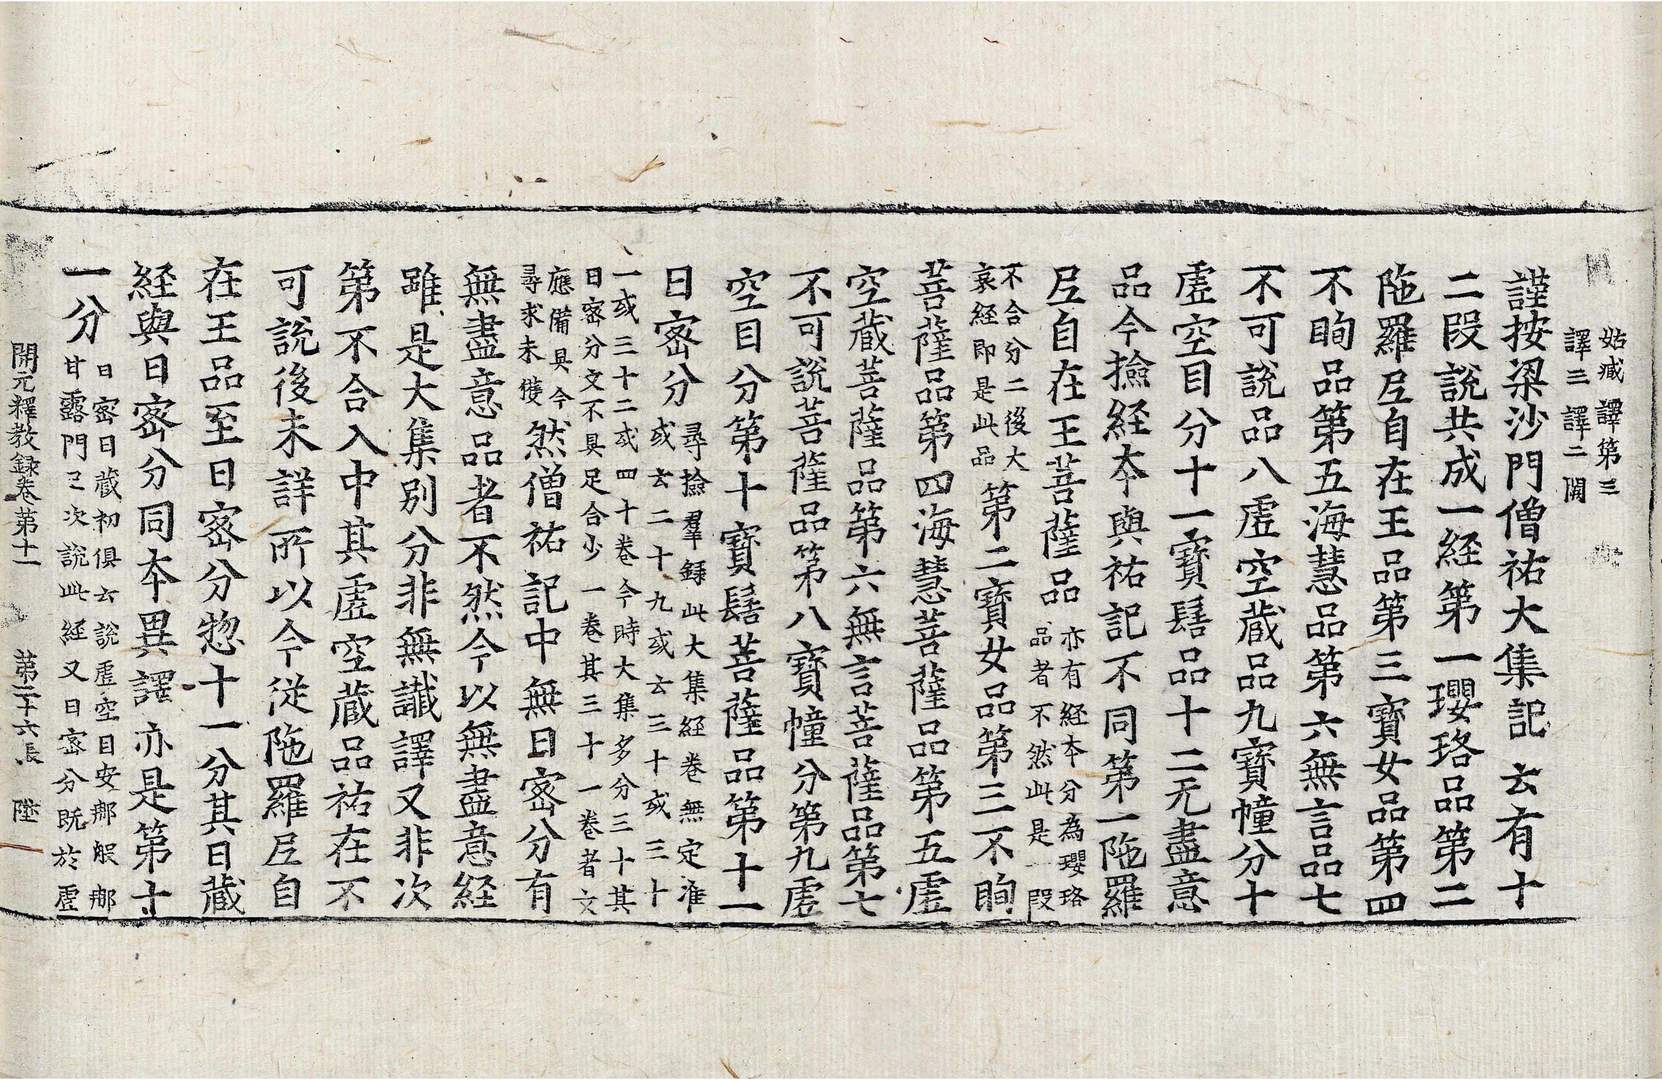 姑臧譯第三
譯三譯二闕
謹按梁沙門僧祐大集記云有十
二段說共成一經第一瓔珞品第二
陁羅尼自在王品第三寶女品第四
不眴品第五海慧品第六無言品七
不可說品八虛空藏品九寶幢分十
虛空目分十一寶髻品十二无盡意
品今撿經本與祐記不同第一陁羅
尼自在王菩薩品
亦有經本分為瓔珞
品者不然此是一段
不合分二後大
哀經即是此品
第二寶女品第三不眴
菩薩品第四海慧菩薩品第五虛
空藏菩薩品第六無言菩薩品第七
不可說菩薩品第八寶幢分第九虛
空目分第十寶髻菩薩品第十一
日密分
尋撿羣錄此大集經卷無定准
或云二十九或云三十或三十
一或三十二或四十卷今時大集多分三十其
日密分文不具足合少一卷其三十一卷者文
應備具今
尋求未獲
然僧祐記中無日密分有
無盡意品者不然今以無盡意經
雖是大集別分非無讖譯又非次
第不合入中其虛空藏品祐在不
可說後未詳所以今從陁羅尼自
在王品至日密分惣十一分其日藏
經與日密分同本異譯亦是第十
一分
日密日藏初俱云說虛空目安郍般郍
甘露門已次說此經又日密分既於虛
開元釋教錄卷第十一　第二十六張　陞